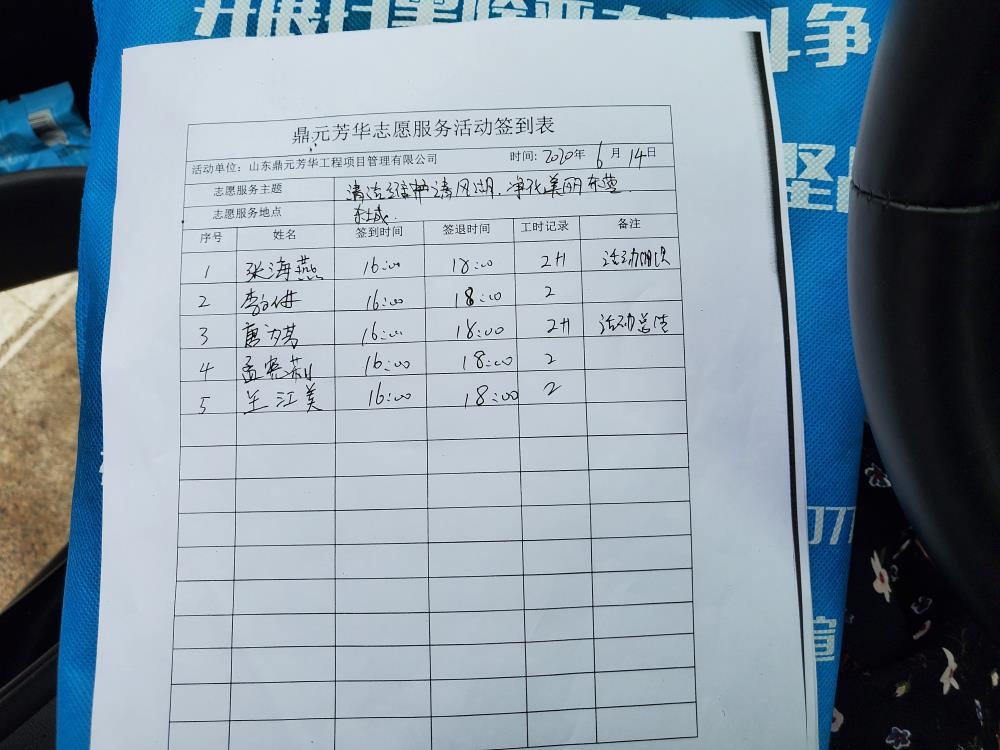 开展扫黑除恶专项斗争
鼎元芳华志愿服务活动签到表
活动单位：山东鼎元芳华工程项目管理有限公司 时间：2020年 6月 14日
志愿服务主题 清洁维护清风湖，净化美丽东营
志愿服务地点 东城
序号 姓名 签到时间 签退时间 工时记录 备注
1 张海燕 16:00 18:00 2H
2 李 16:00 18:00 2
3 唐 16:00 18:00 2H 活动总结
4 孟晓莉 16:00 18:00 2
5 王江美 16:00 18:00 2
077
宣